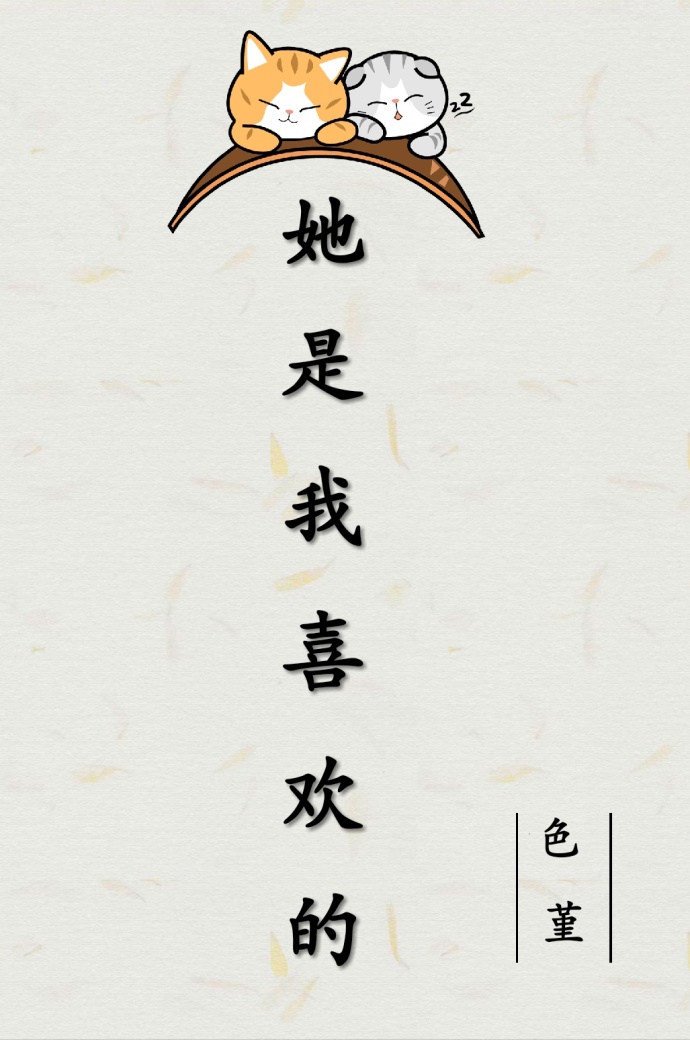 她是我喜欢的
色堇
zz